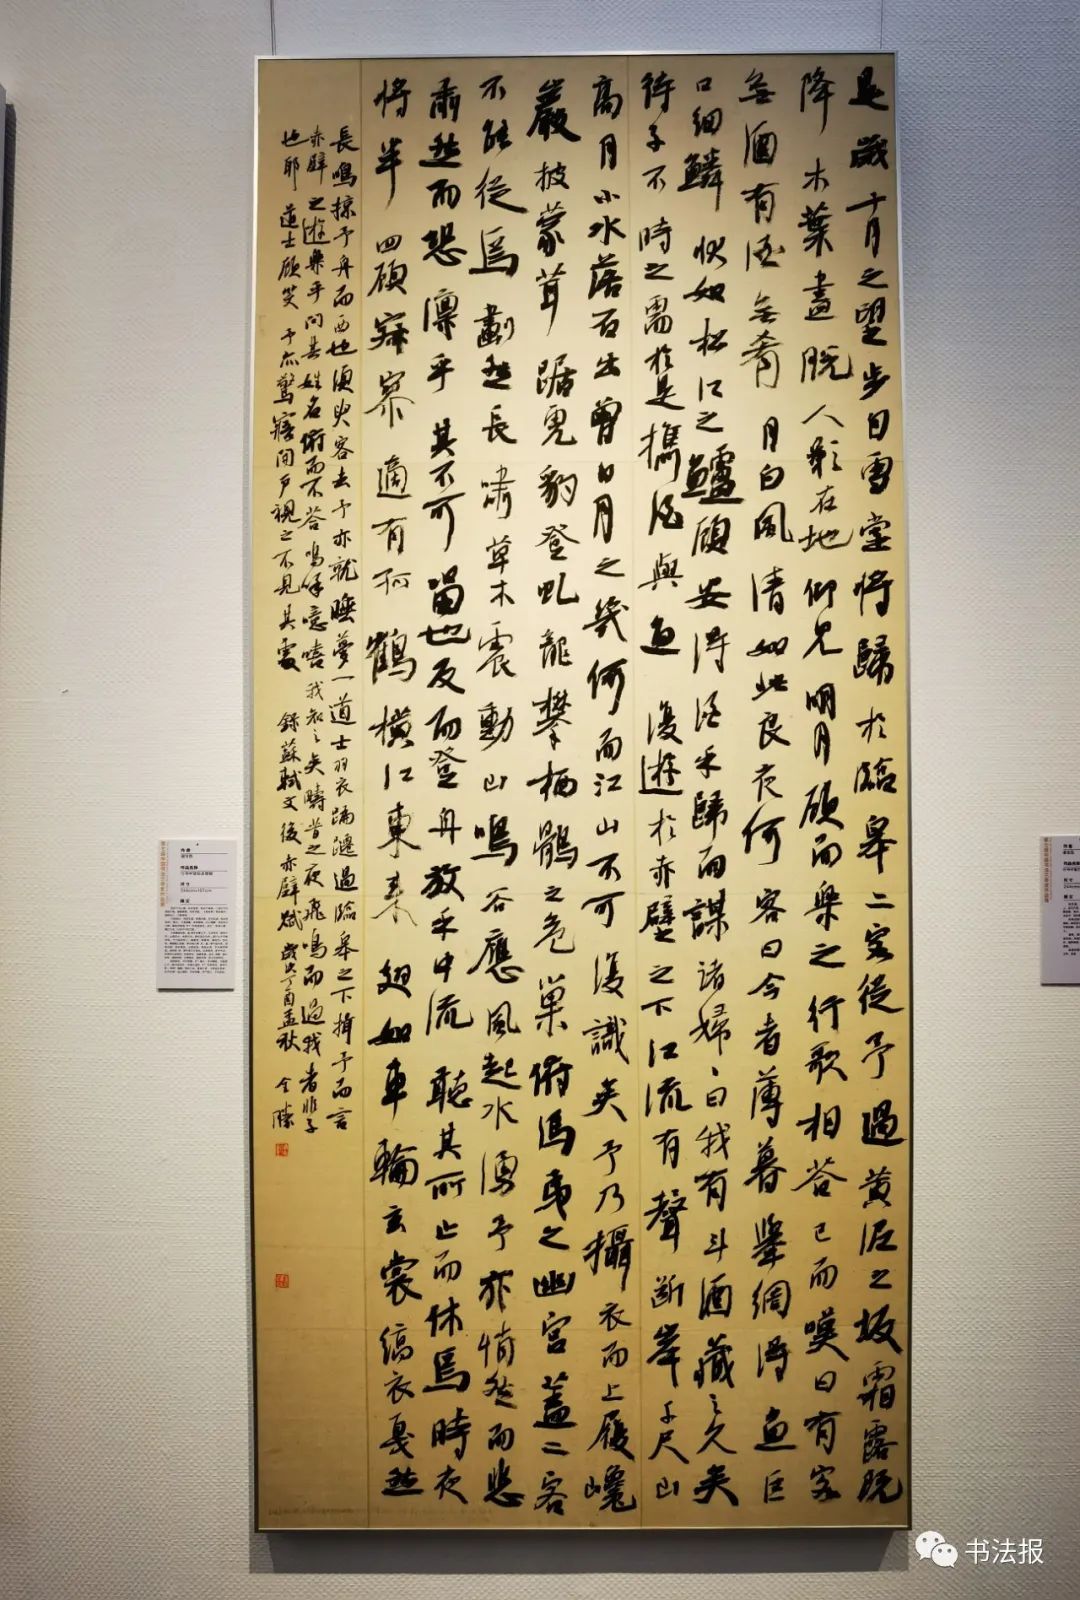 是歲十月之望步自雪堂將歸於臨皋二客從予過黃泥之坂霜露既
降木葉盡脫人影在地仰見明月顧而樂之行歌相答已而嘆曰有客
無酒有酒無肴月白風清如此良夜何客曰今者薄暮舉網得魚巨
口細鱗狀如松江之鱸顧安得酒乎歸而謀諸婦、曰我有斗酒藏之久矣
待子不時之需於是攜酒與魚復遊於赤壁之下江流有聲斷岸千尺山
高月小水落石出曾日月之幾何而江山不可復識矣予乃攝衣而上履巉
巖披蒙茸踞虎豹登虬龍攀栖鶻之危巢俯馮夷之幽宮蓋二客
不能從焉劃然長嘯草木震動山鳴谷應風起水湧予亦悄然而悲
肅然而恐凜乎其不可留也反而登舟放乎中流聽其所止而休焉時夜
將半四顧寂寥適有孤鶴橫江東來翅如車輪玄裳縞衣戛然
長鳴掠予舟而西也須臾客去予亦就睡夢一道士羽衣蹁躚過臨皋之下揖予而言
赤壁之遊樂乎問其姓名俯而不答嗚呼噫嘻我知之矣疇昔之夜飛鳴而過我者非子
也耶道士顧笑予亦驚寤開戶視之不見其處 錄蘇軾文後赤壁賦歲次丁酉孟秋
书法报